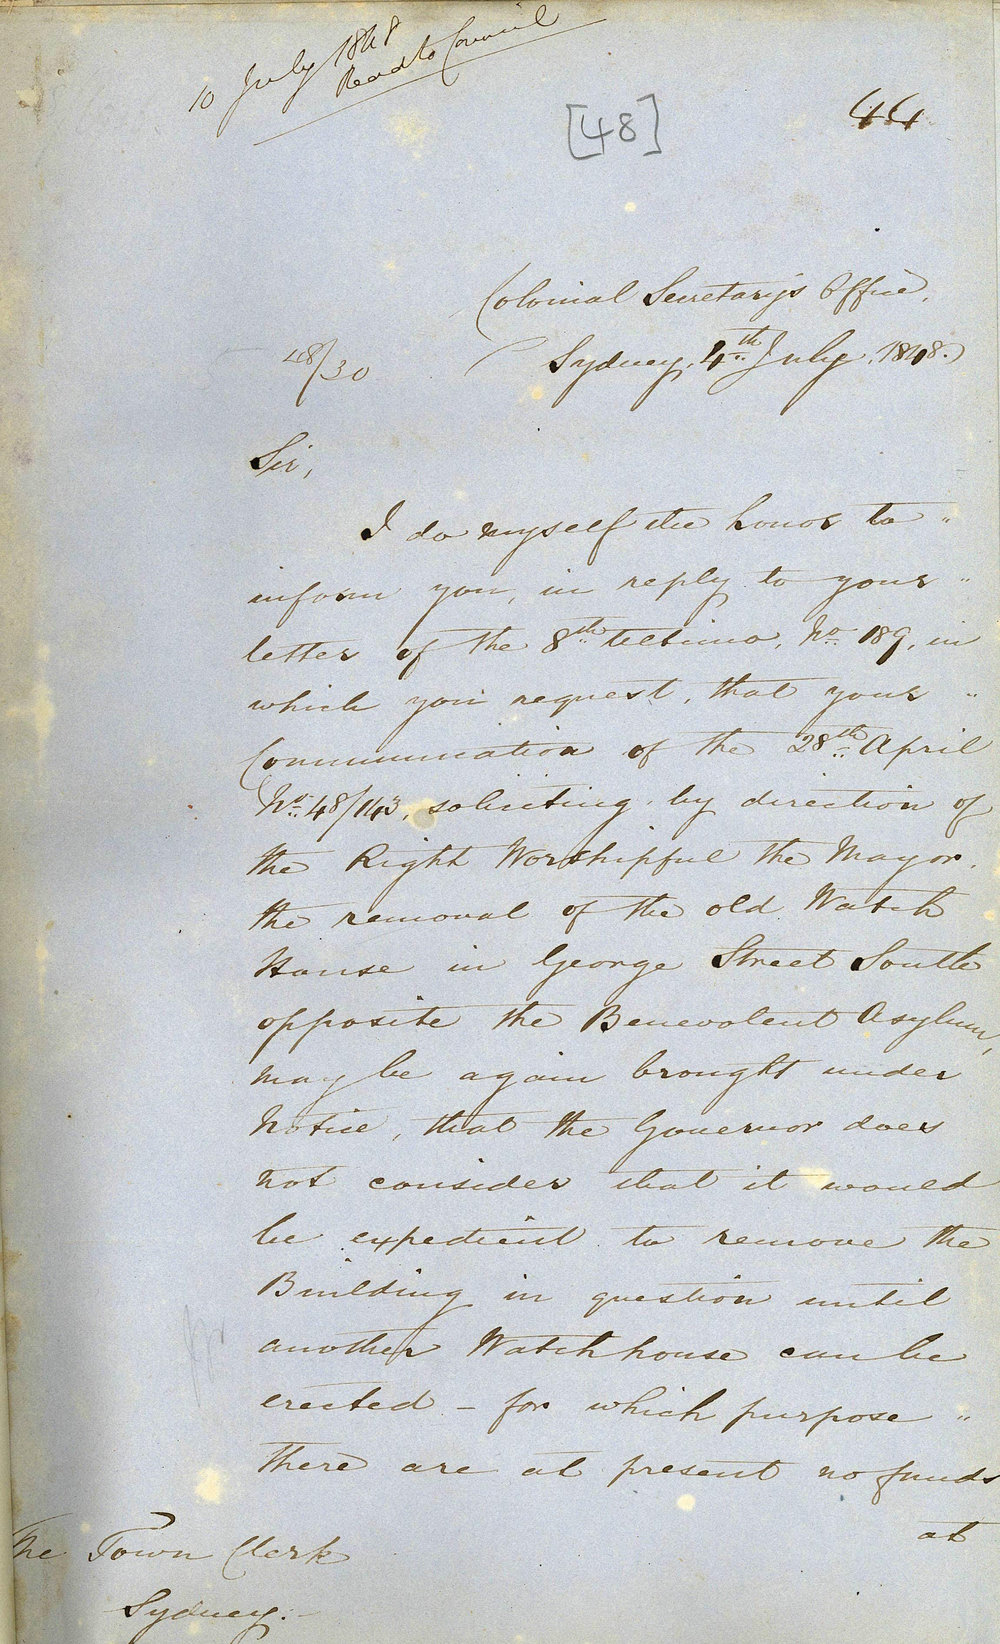 10 July 1848
Read to Council
[48]
44
Colonial Secretary's Office,
Sydney, 4th July, 1848.
48/30
Sir,
I do myself the honor to "
inform you, in reply to your "
letter of the 8th Ultimo, No 189, in
which you request, that your "
Communication of the 28th April
No 48/143, soliciting, by direction of
the Right Worshipful the Mayor,
the removal of the old Watch
House in George Street South
opposite the Benevolent Asylum,
may be again brought under
notice, that the Governor does
not consider that it would
be expedient to remove the
Building in question until
another Watch house can be
erected – for which purpose "
there are at present no funds
at
The Town Clerk
Sydney.